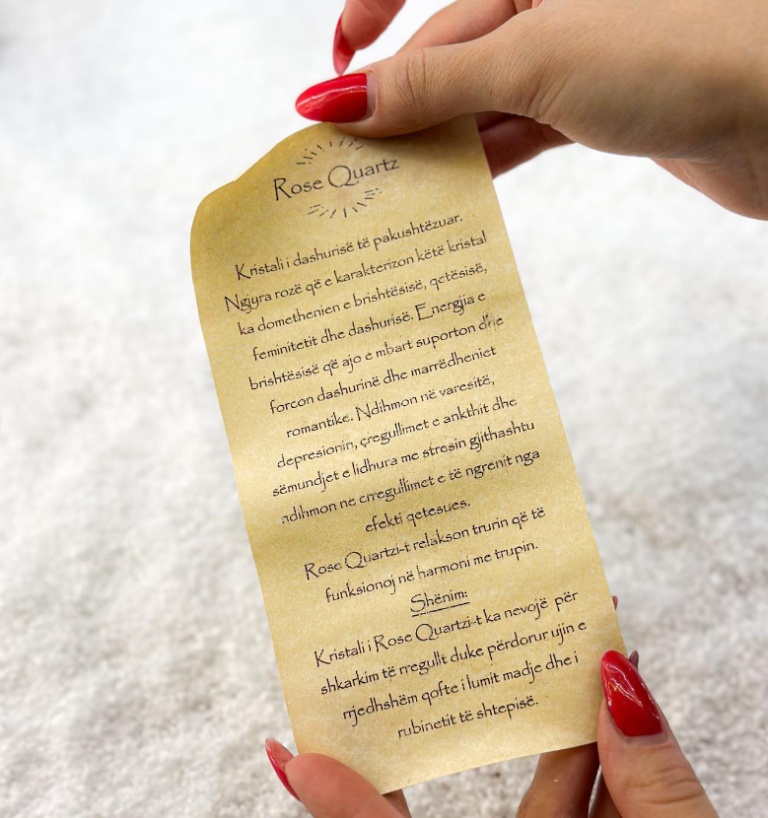 Rose Quartz
Kristali i dashurisë të pakushtëzuar.
Ngjyra rozë që e karakterizon këtë kristal
ka domethenien e brishtësisë, qetësisë,
feminitetit dhe dashurisë. Energjia e
brishtësisë që ajo e mbart suporton dhe
forcon dashurinë dhe marrëdheniet
romantike. Ndihmon në varesitë,
depresionin, çregullimet e ankthit dhe
sëmundjet e lidhura me stresin gjithashtu
ndihmon ne crregullimet e të ngrenit nga
efekti qetesues.
Rose Quartzi-t relakson trurin që të
funksionoj në harmoni me trupin.
Shënim:
Kristali i Rose Quartzi-t ka nevojë për
shkarkim të rregullt duke përdorur ujin e
rrjedhshëm qofte i lumit madje dhe i
rubinetit të shtepisë.